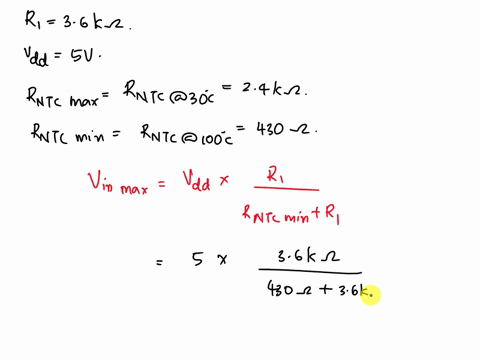 R₁ = 3.6 kΩ.
Vdd = 5V.
RNTC max = RNTC @30°C = 2.4 kΩ.
RNTC min = RNTC @100°C = 430 Ω.
Vin max = Vdd × R₁ / RNTC min + R₁
= 5 × 3.6 kΩ / 430 Ω + 3.6k